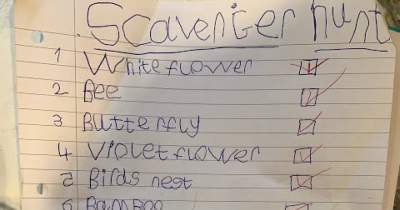 Scavenger hunt
1 White flower
2 Bee
3 Butterfly
4 Violet flower
5 Birds nest
6 Bamboo